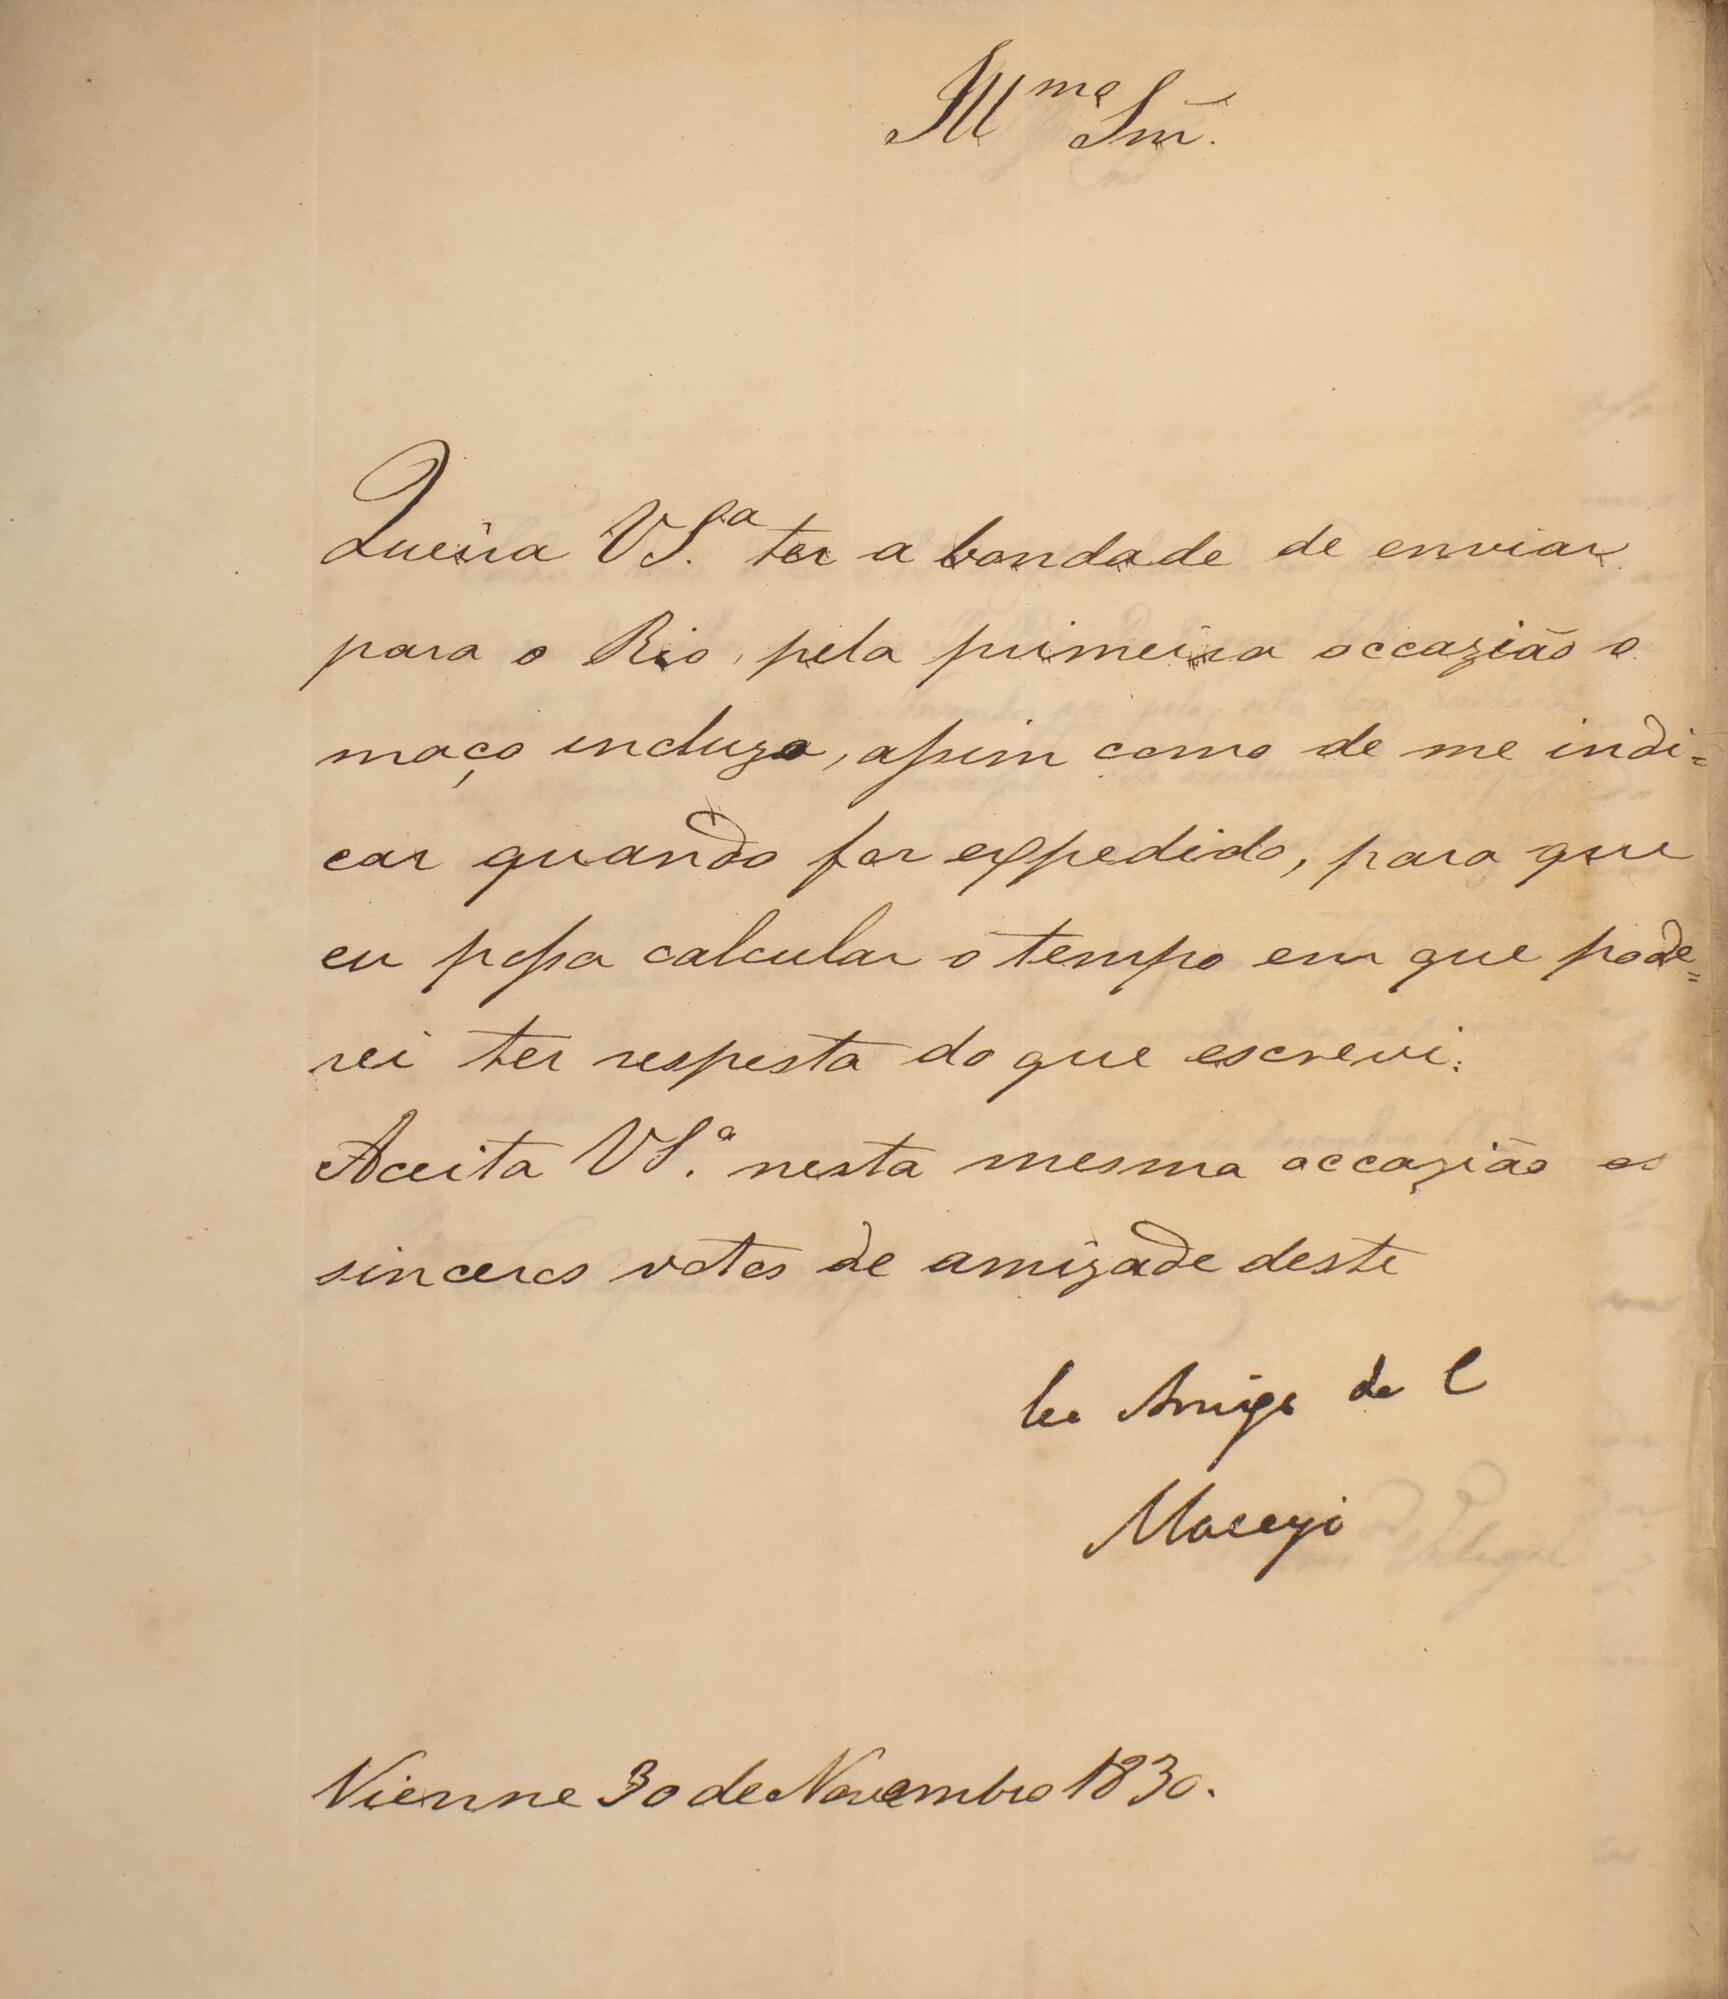 Illmo Snr.
Queira VS.a ter a bondade de enviar
para o Rio, pela primeira occazião o
maço incluzo, assim como de me indi=
car quando for expedido, para que
eu possa calcular o tempo em que pode=
rei ter resposta do que escrevi.
Aceita VS.a nesta mesma occazião os
sinceros votos de amizade deste
Amigo do C
Vienne 30 de Novembro 1830.